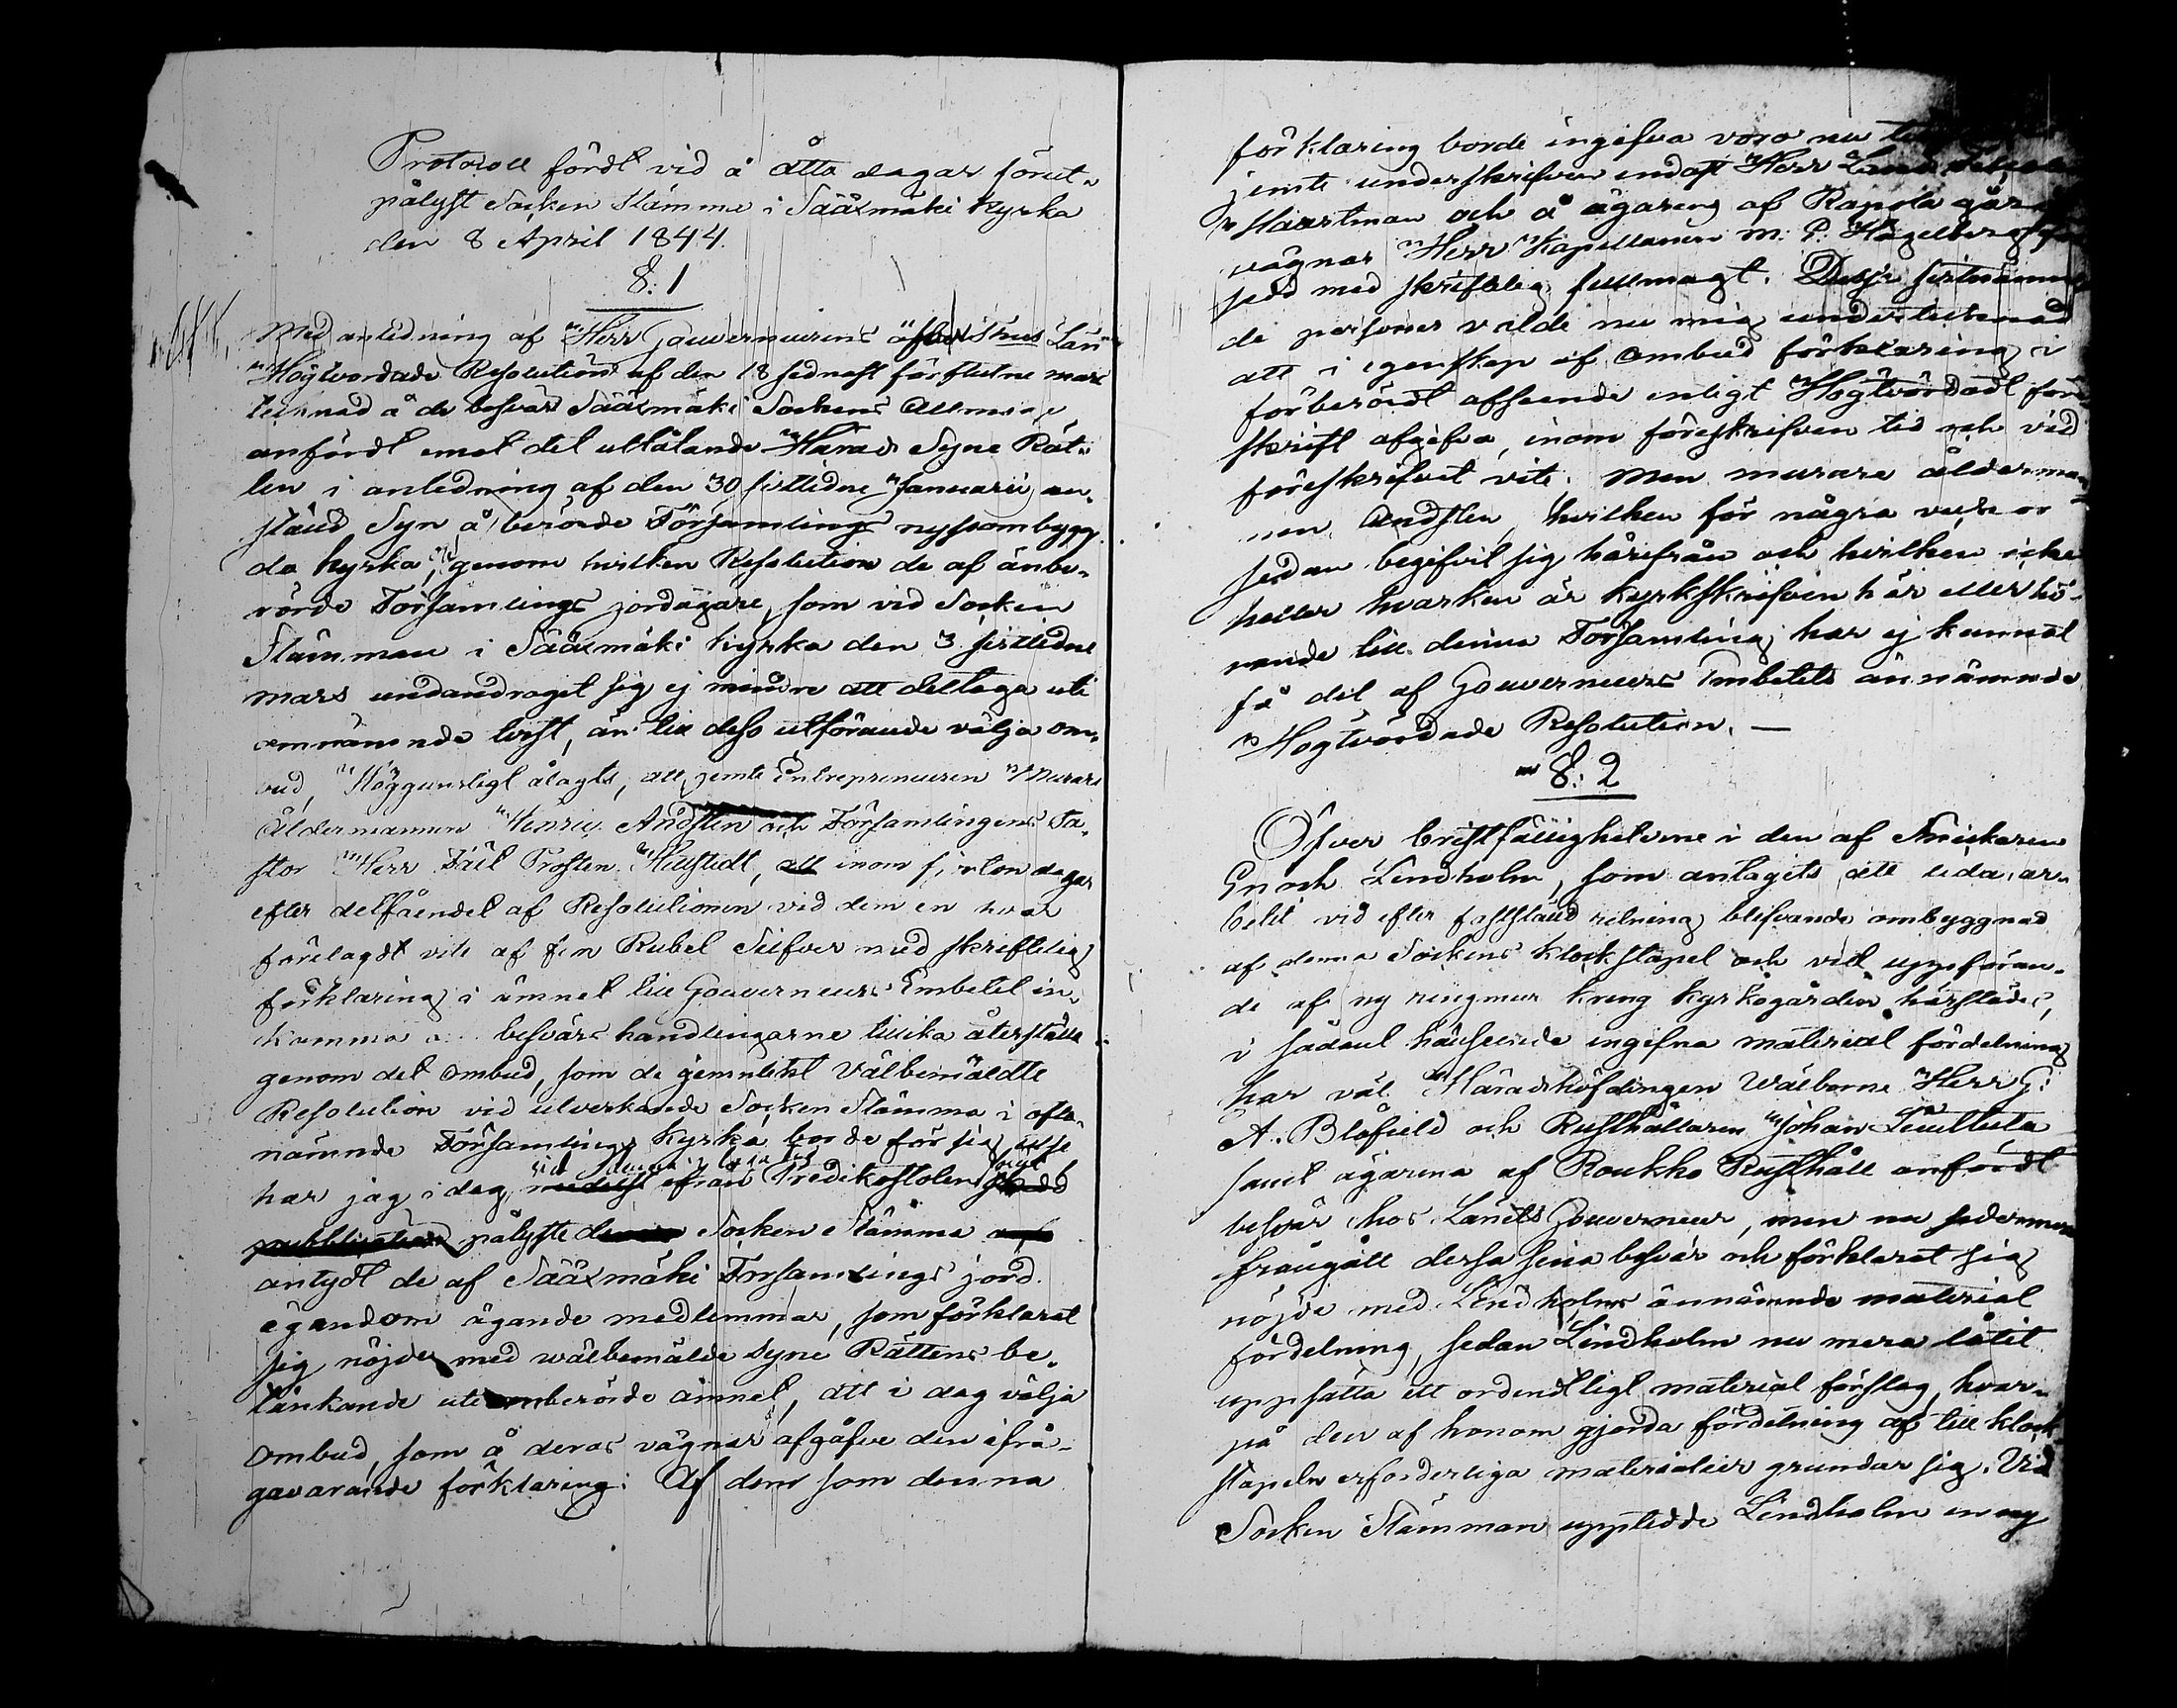 Protocoll fördt vid å åtta dagar förut-
pålyst Socken Stämma i Sääxmäki Kyrka
den 8 April 1844.
§: 1
Med anledning af Herr Gouverneurens öfver Thus Län
Högtvördade Resolution af den 18 sednast förflutne mars
tecknad å de besvär Sääxmäki Sockens Allmoge
anfördt emot det utlåtande Härads Syne Rät-
ten i anledning af den 30 sistledne Januarii an-
stäld Syn å berörde Församlings nyssombygg-
da kyrka, genom hvilken Resolution de af änbe-
rörde Församlings jordägare, som vid Socken
Stämman i Sääxmäki kyrka den 3 sistledne
mars undandraget sig ej mindre att deltaga uti
omnämnde tvist, än till dess utförande välja om-
bud, Höggunstligt ålagts, att jemte Entrepreneuren Murare
Åldermannen Henric Andsten och Församlingens Pa-
stor Herr Fält Prosten Hellstedt, att inom fjorton dagar
efter delfåendet af Resolutionen vid dem en hvar
förelagdt vite af fem Rubel Silfver med skriftelig
förklaring i ämnet till Gouverneurs Embetet in-
komma besvärs handlingarne tillika återställa
genom det ombud, som de jemnlikt Välbemäldte
Resolution vid utverkande Socken Stämma i ofta-
nämnde Församlings kyrka borde för sig utse
har jag i dag medelst ifrån Predikostolen skedd
publication pålyste denna Socken Stämma och
antydt de af Sääxmäki Församlings jord
egendom ägande medlemmar, som förklarat
sig nöjde med wälbemälde Syne Rättens be-
tänkande uti omberörde ämnet, att i dag välja
ombud, som å deras vägnar afgåfve den ifrå-
gavarande förklaring: Af dem som denna
förklaring borde ingifva voro nu
jemte underskrifven endast Herr
Haartman och å ägaren af Rapola gård
vägnar Herr Kapellanen M: P: Hägelberg
sedd med skriftelig fullmagt. Desse sistnämn
de personer valde nu mig undertecknad
att i egenskap af ombud förklaring i
förberördt afseende enligt Högtvördadt före
skrift afgifva, inom föreskrifven tid och vid
föreskrifvet vite. Men murare åldermann-
nen Andsten, hvilken för några veckor
sedan begifvit sig härifrån och hvilken icke
heller hvarken är kyrkskrifven här eller hö-
rande till denna Församling har ej kunnat
få del af Gouverneurs Embetetsännämnde
Högtvördade Resolution. —
§: 2
Öfver bristfälligheterne i den af Snickaren
Enoch Lindholm, som antagits att leda ar-
betet vid efter fastställd ritning blifvande ombyggnad
af denna Sockens klockstapel och vid uppföran-
de af ny ringmur kring kyrkogården härstädes,
i sådant hänseende ingifna material fördelning
har väl Häradshöfdingen Wälborne Herr G:
A. Blåfield och Rusthållaren Johan
samt ägarena af Roukko Rusthåll anfördt
besvär hos Länets Gouverneur, men nu sedermera
frångått dessa sina besvär och förklarat sig
nöjde med Lindholms ännämnde material
fördelning, sedan Lindholm nu mera låtit
uppsätta ett ordentligt material förslag, hvar-
på den af honom gjorda fördelning af till klock
stapeln erforderliga materialier grundar sig. Vid
Socken Stämman uppledde Lindholm en ny